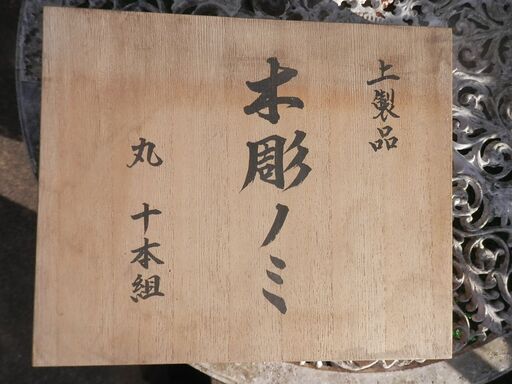 上製品
木彫ノミ
丸 十本組